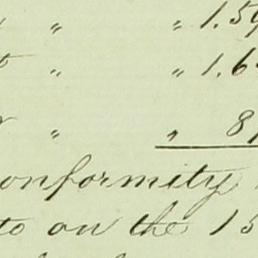 " " 1.59
" " 1.6
" " 8
onformity
to on the 15